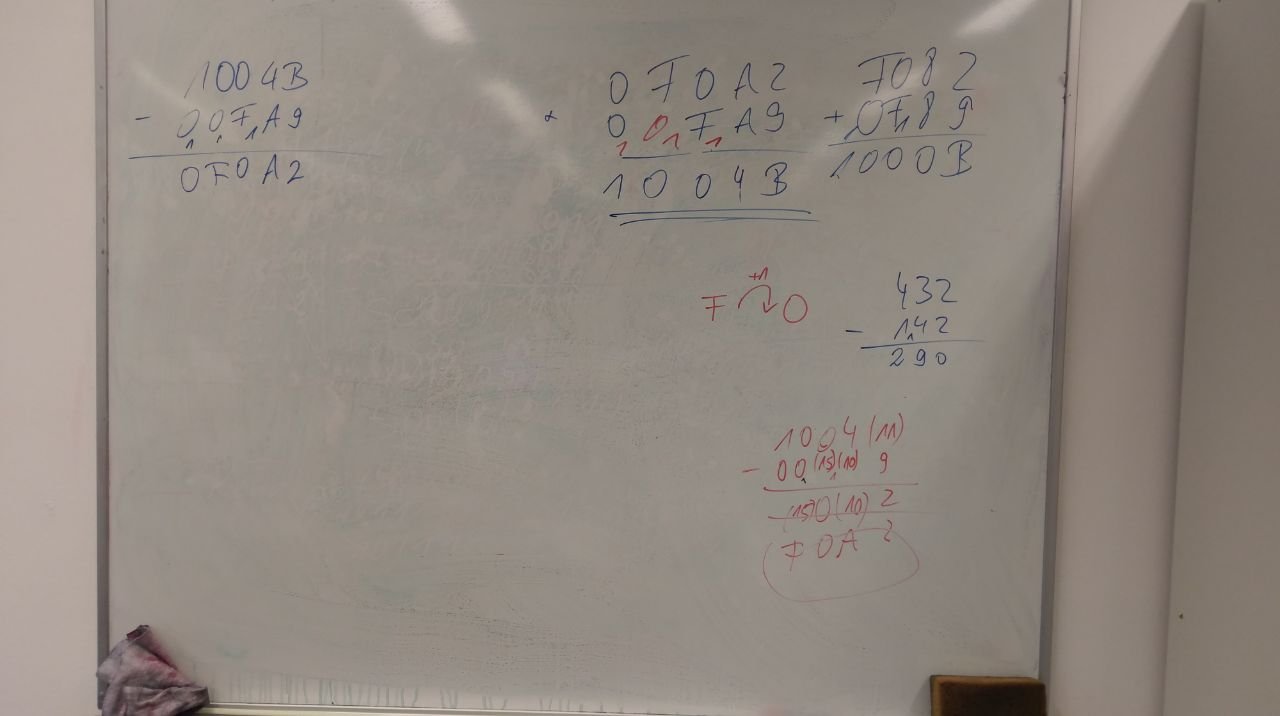 1004B
- 00FA9
1 1 1
0F0A2
0F0A2
+ 00FA9
1 1 1
1004B
F082
+ 0F89
1 1
1000B
+1
F 0
432
- 142
1
290
1004(11)
- 00(15)(10)9
1 1
(15)0(10)2
F0A2